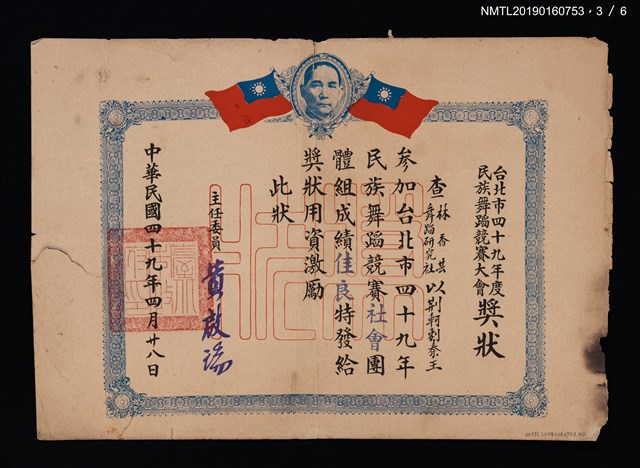 NMTL20190160753・3 / 6
台北市四十九年度
民族舞蹈競賽大會
獎狀
查林香芸
舞蹈研究社
以荊軻刺秦王
參加台北市四十九年
民族舞蹈競賽社會團
體組成績佳良特發給
獎狀用資激勵
此狀
主任委員 黃啟瑞
中華民國四十九年四月廿八日